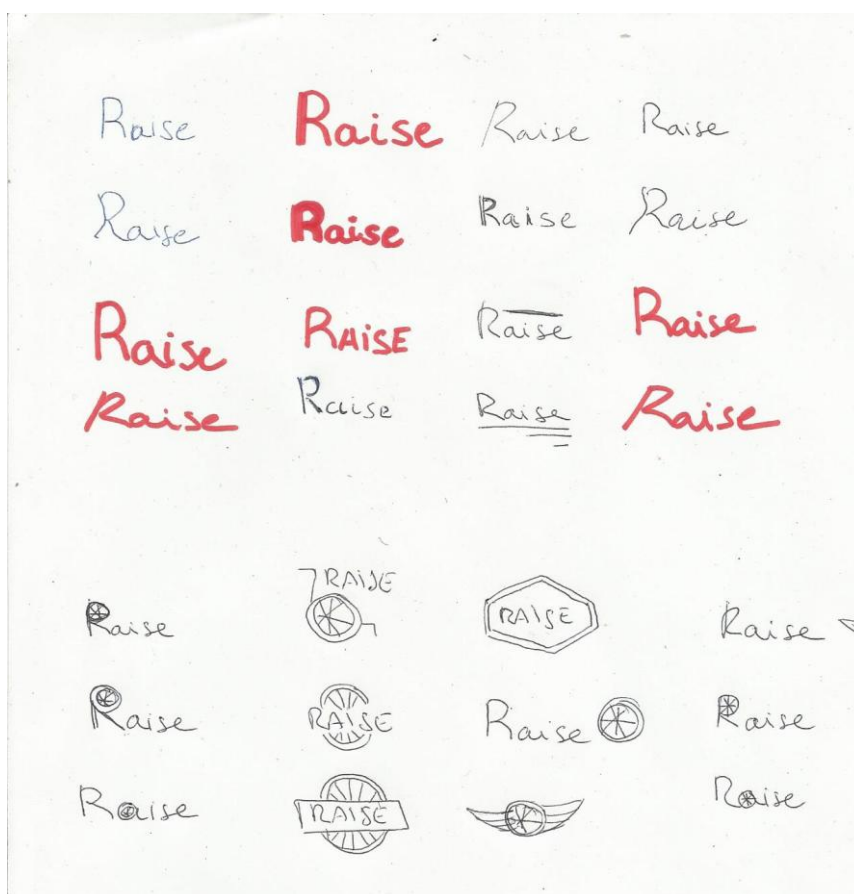 Raise Raise Raise Raise
Raise Raise Raise Raise
Raise RAISE Raise Raise
Raise Raise Raise Raise
Raise RAISE RAISE Raise
Raise RAISE Raise Raise
Raise RAISE Raise